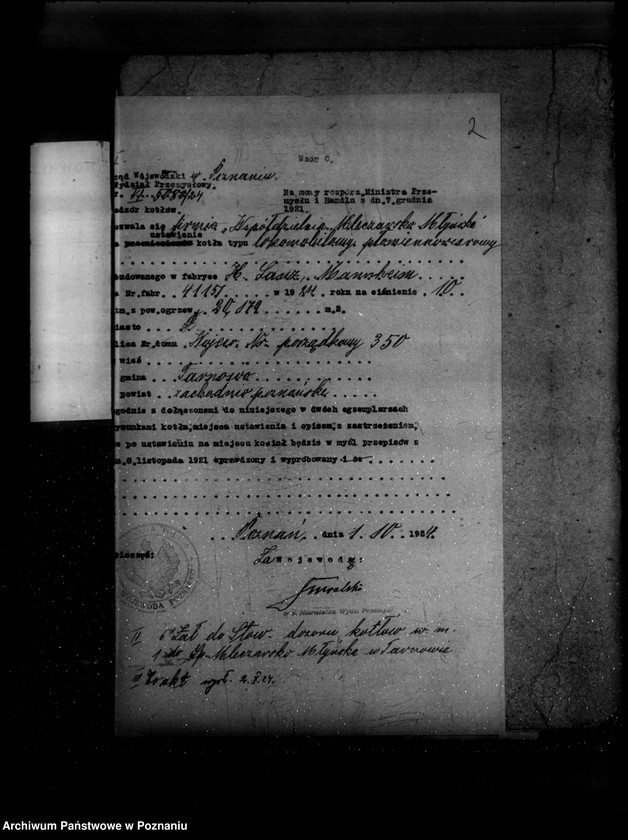 2
Wzor C.
ząd Wojewódzki w Poznaniu.
Wydział Przemysłowy.
Na mocy rozporz. Ministra Prze-
mysłu i Handlu z dn. 7. grudnia
1921.
adzór kotłów.
ozwala się firmie „Współdzielnia Mleczarsko Młyńska"
ustawienie
a kotła typu lokomobilowy płomiennorurowy
budowanego w fabryce H. Lanz, Mannheim
a Nr. fabr. 41151 w 1924 roku na ciśnienie 10
tm. z pow. ogrzew. m.2.
iasto
lica Nr. domu Nr. porządkowy 350
wieś
gmina Tarnowo
powiat zachodnio poznański
godnie z dołączonemi do niniejszego w dwóch egzemplarzach
ysunkami kotła, miejsca ustawienia i opisem, z zastrzeżeniem,
e po ustawieniu na miejscu kocioł będzie w myśl przepisów z
n. 8. listopada 1921 sprawdzony i wypróbowany i że
Poznań dnia 1. 10. 1924.
ieczęć:
Za Wojewodę:
w z. Naczelnika Wydz. Przemysł.
II Zał do Stow. dozoru kotłów w. m.
Sp. Mleczarsko Młyńska w Tarnowie
III
Archiwum Państwowe w Poznaniu